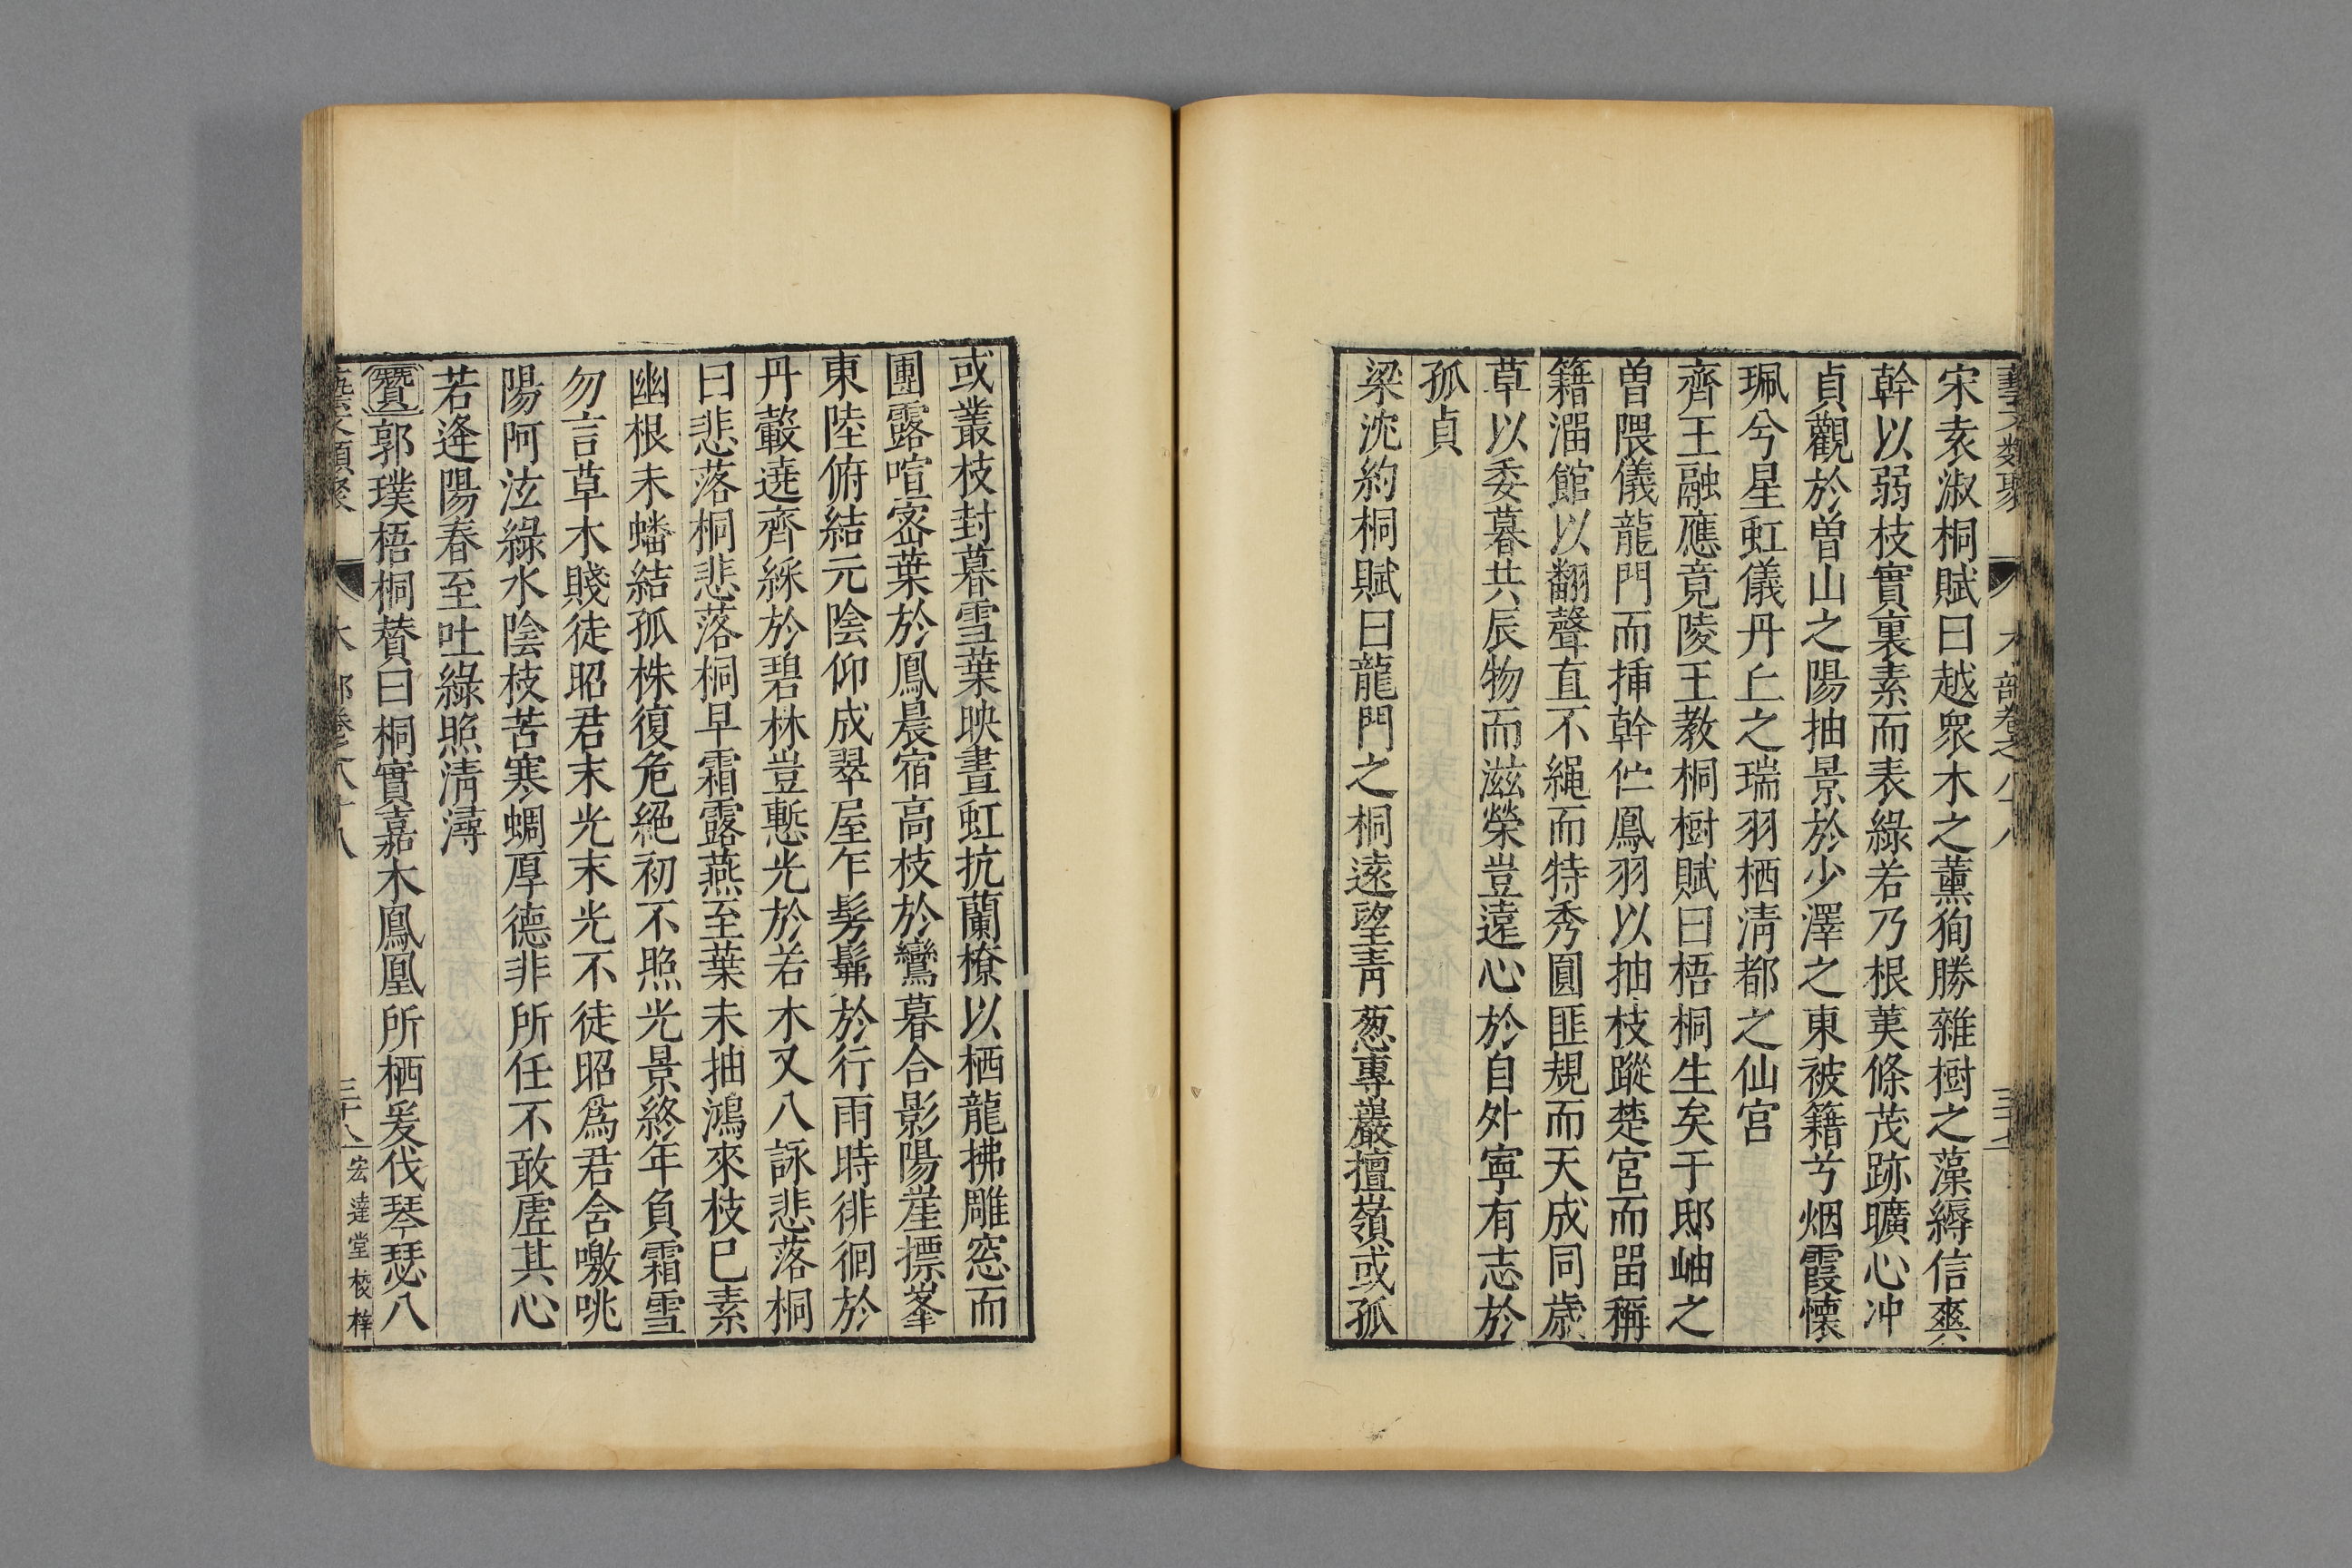 藝文類聚 木部卷之八十八 三十七
宋袁淑桐賦曰越衆木之薰狥勝雜樹之藻縟信爽
幹以弱枝實裏素而表綠若乃根荑條茂跡曠心冲
貞觀於曾山之陽抽景於少澤之東被籍兮烟霞懷
珮兮星虹儀丹丘之瑞羽栖清都之仙宮
齊王融應竟陵王教桐樹賦曰梧桐生矣于邸岫之
曾隈儀龍門而揷幹伫鳳羽以抽枝蹤楚宮而留稱
籍溜館以翻聲直不繩而特秀圓匪規而天成同歲
草以委暮共辰物而滋榮豈遠心於自外寧有志於
孤貞
梁沈約桐賦曰龍門之桐遠望青葱專巖擅嶺或孤
或叢枝封暮雪葉映晝虹抗蘭橑以栖龍拂雕窓而
團露喧密葉於鳳晨宿高枝於鸞暮合影陽崖摽峯
東陸俯結元陰仰成翠屋乍髣髴於行雨時徘徊於
丹轂遶齊綵於碧林豈慙光於若木又八詠悲落桐
曰悲落桐悲落桐早霜露燕至葉未抽鴻來枝巳素
幽根未蟠結孤株復危絕初不照光景終年負霜雪
勿言草木賤徒昭君末光末光不徒昭爲君含噭咷
陽阿泫綠水陰枝苦寒蜩厚德非所任不敢虛其心
若逢陽春至吐綠照清潯
贊郭璞梧桐贊曰桐實嘉木鳳凰所栖爰伐琴瑟八
藝文類聚 木部卷之八十八 三十八 宏達堂校梓